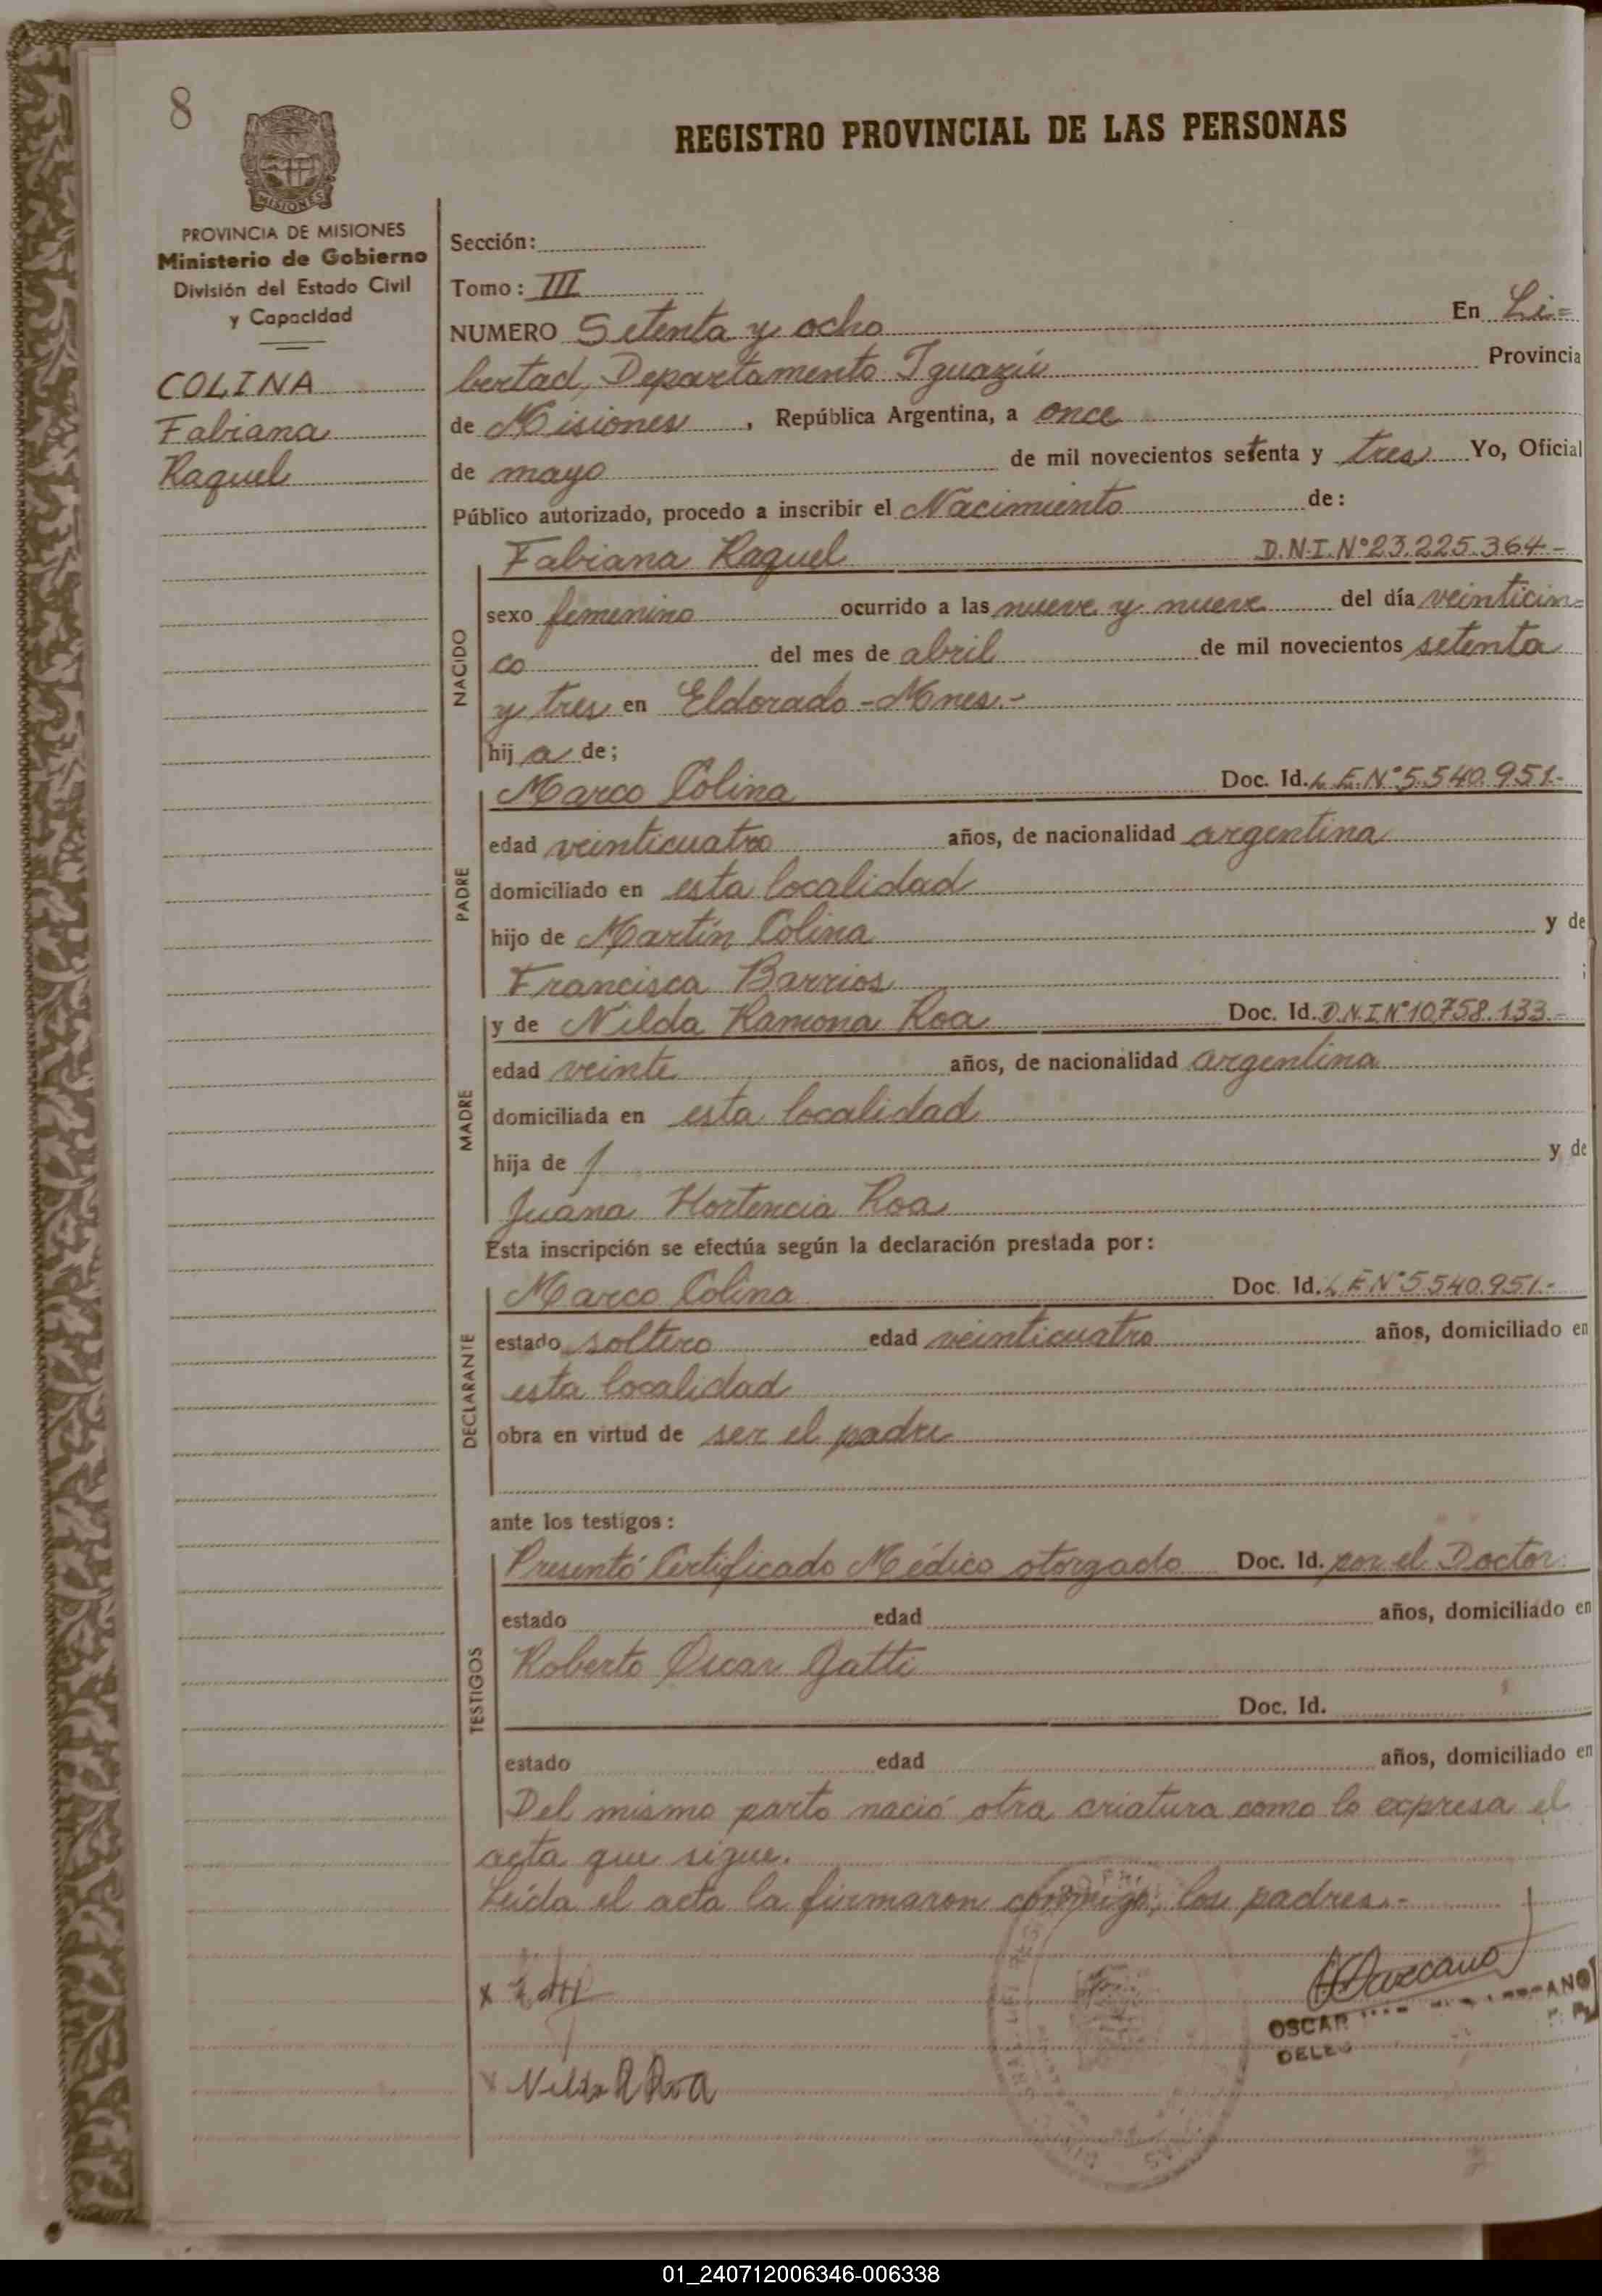 8
REGISTRO PROVINCIAL DE LAS PERSONAS
MISIONES
PROVINCIA DE MISIONES
Ministerio de Gobierno
División del Estado Civil
y Capacidad
COLINA
Fabiana
Raquel
Sección:
Tomo: III
NUMERO Setenta y ocho En Li=
bertad, Departamento Iguazú Provincia
de Misiones, República Argentina, a once
de mayo de mil novecientos setenta y tres Yo, Oficial
Público autorizado, procedo a inscribir el Nacimiento de:
NACIDO
Fabiana Raquel D.N.I. Nº 23.225.364-
sexo femenino ocurrido a las nueve y nueve del día veinticin=
co del mes de abril de mil novecientos setenta
y tres en Eldorado - Mnes.-
hij a de;
PADRE
Marco Colina Doc. Id. L.E. Nº 5.540.951.-
edad veinticuatro años, de nacionalidad argentina
domiciliado en esta localidad
hijo de Martín Colina y de
Francisca Barrios ;
MADRE
y de Nilda Ramona Roa Doc. Id. D.N.I Nº 10.758.133.-
edad veinte años, de nacionalidad argentina
domiciliada en esta localidad
hija de y de
Juana Hortencia Roa
Esta inscripción se efectúa según la declaración prestada por:
DECLARANTE
Marco Colina Doc. Id. L E Nº 5.540.951.-
estado soltero edad veinticuatro años, domiciliado en
esta localidad
obra en virtud de ser el padre
ante los testigos:
TESTIGOS
Presentó Certificado Médico otorgado Doc. Id. por el Doctor:
estado edad años, domiciliado en
Roberto Oscar Gatti
Doc. Id.
estado edad años, domiciliado en
Del mismo parto nació otra criatura como lo expresa el
acta que sigue.
Leída el acta la firmaron conmigo, los padres.-
x
OSCAR
x Nilda R Roa
01_240712006346-006338